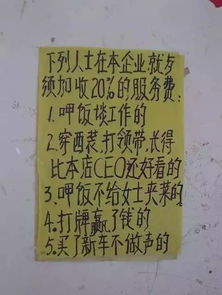 下列人士在本企业就歺
须加收20%的服务费:
1.呷饭谈工作的
2.穿西装.打领带.长得
比本店CEO还好看的
3.呷饭不给女士夹菜的
4.打牌赢了钱的
5.买了新车不做声的